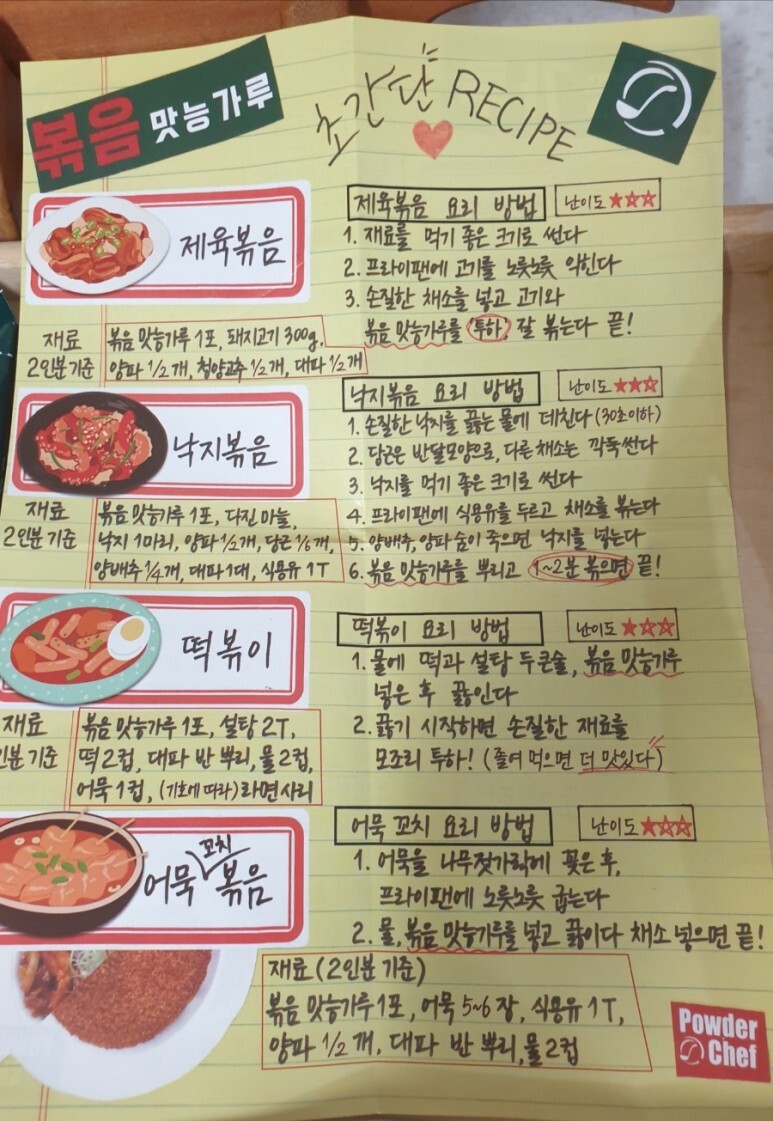 볶음 맛능가루
초간단 RECIPE
제육볶음
재료
2인분 기준
볶음 맛능가루 1포, 돼지고기 300g,
양파 1/2개, 청양고추 1/2개, 대파 1/2개
제육볶음 요리 방법
난이도 ★☆☆
1. 재료를 먹기 좋은 크기로 썬다
2. 프라이팬에 고기를 노릇노릇 익힌다
3. 손질한 채소를 넣고 고기와
볶음 맛능가루를 '투하' 잘 볶는다 끝!
낙지볶음
재료
2인분 기준
볶음 맛능가루 1포, 다진 마늘,
낙지 1마리, 양파 1/2개, 당근 1/6개,
양배추 1/4개, 대파 1대, 식용유 1T
낙지볶음 요리 방법
난이도 ★★☆
1. 손질한 낙지를 끓는 물에 데친다 (30초이하)
2. 당근은 반달모양으로, 다른 채소는 깍둑썬다
3. 낙지를 먹기 좋은 크기로 썬다
4. 프라이팬에 식용유를 두르고 채소를 볶는다
5. 양배추, 양파 숨이 죽으면 낙지를 넣는다
6. 볶음 맛능가루를 뿌리고 1~2분 볶으면 끝!
떡볶이
재료
인분 기준
볶음 맛능가루 1포, 설탕 2T,
떡 2컵, 대파 반 뿌리, 물 2컵,
어묵 1컵, (기호에 따라) 라면사리
떡볶이 요리 방법
난이도 ★☆☆
1. 물에 떡과 설탕 두큰술, 볶음 맛능가루
넣은 후 끓인다
2. 끓기 시작하면 손질한 재료를
모조리 투하! (졸여 먹으면 더 맛있다)
어묵 꼬치 볶음
어묵 꼬치 요리 방법
난이도 ★☆☆
1. 어묵을 나무젓가락에 꽂은 후,
프라이팬에 노릇노릇 굽는다
2. 물, 볶음 맛능가루를 넣고 끓이다 채소 넣으면 끝!
재료 (2인분 기준)
볶음 맛능가루 1포, 어묵 5~6장, 식용유 1T,
양파 1/2개, 대파 반 뿌리, 물 2컵
Powder
Chef